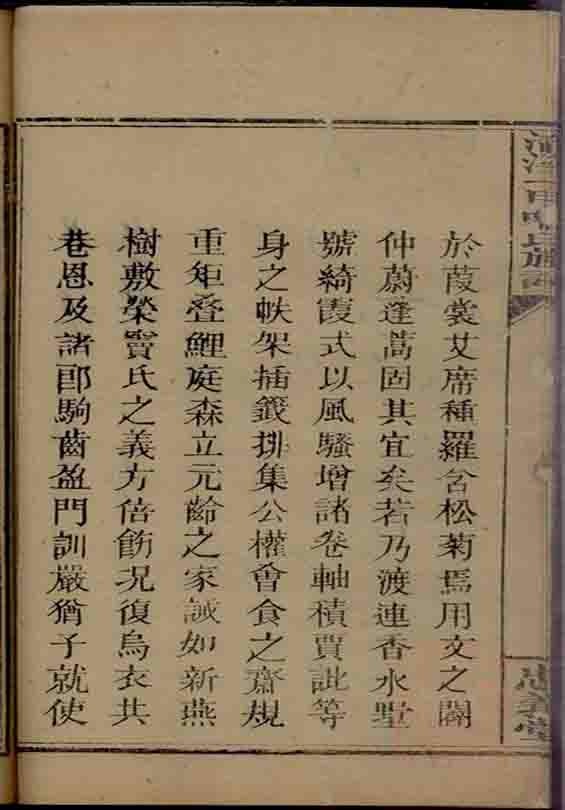 於葭裳艾席種羅含松菊焉用文之闢
仲蔚蓬蒿固其宜矣若乃渡連香水墅
號綺霞式以風騷增諸卷軸積賈訿等
身之帙架插籤排集公權會食之齋規
重矩叠鯉庭森立元齡之家誡如新燕
樹敷榮竇氏之義方倍飭況復烏衣共
巷恩及諸郎駒齒盈門訓嚴猶子就使